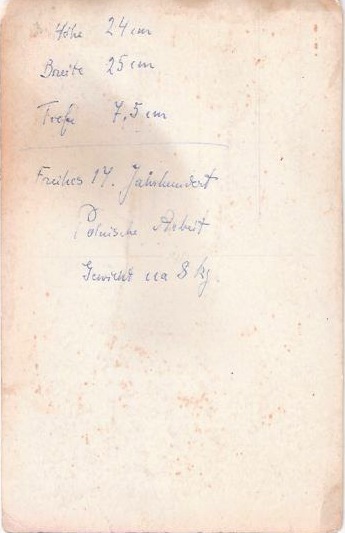 Höhe 24 cm
Breite 25 cm
Tiefe 7,5 cm
Frühes 17. Jahrhundert
Polnische Arbeit
Gewicht ca 8 kg